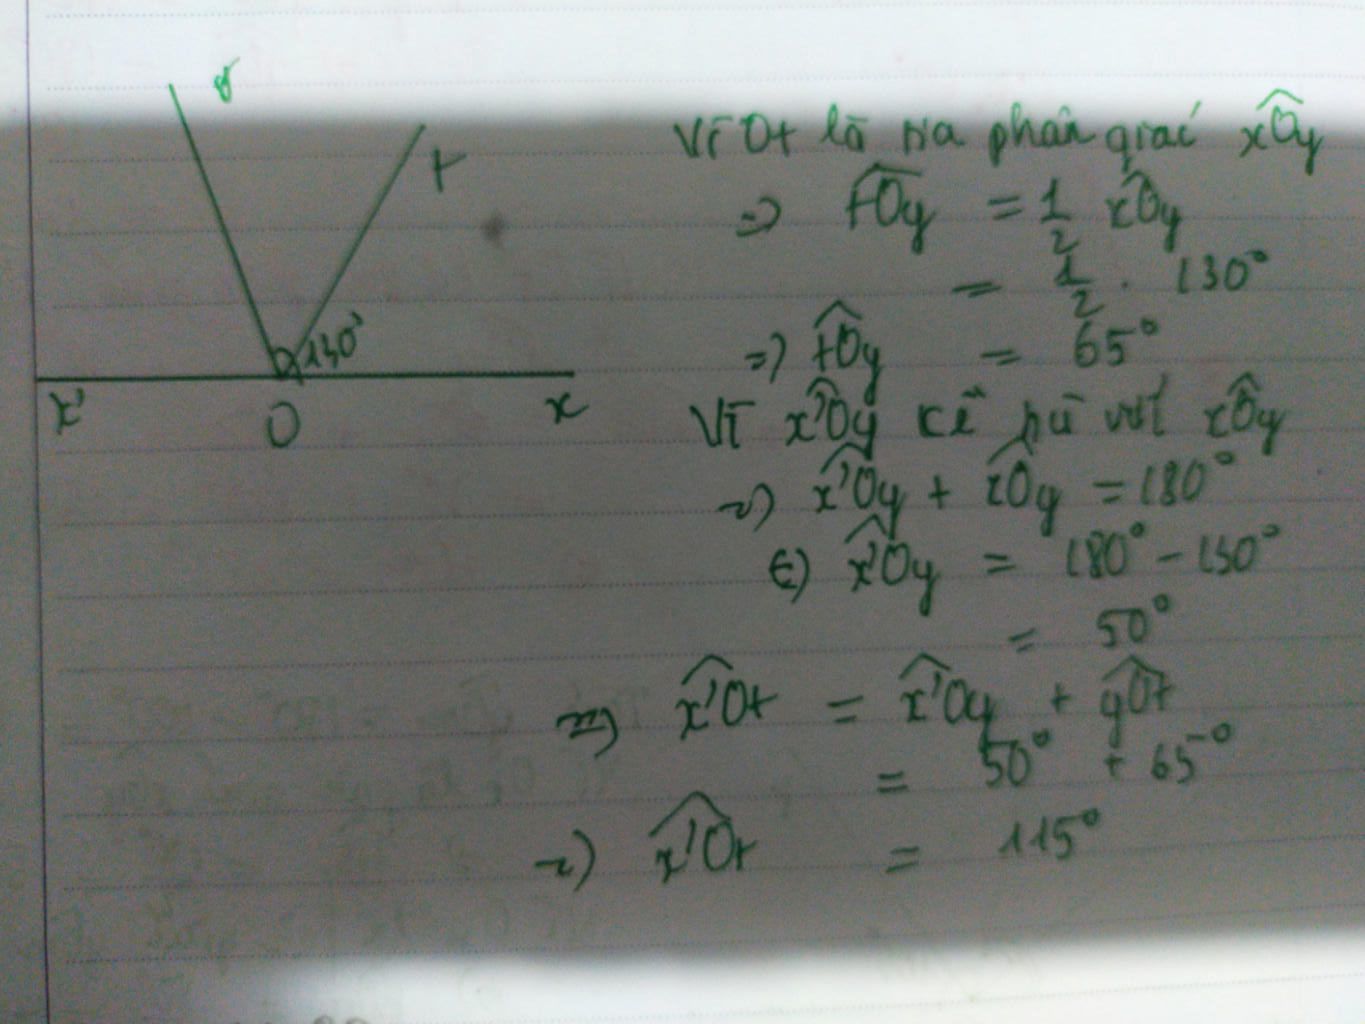 y
t
130°
x'
O
x
Vì Ot là tia phân giác xÔy
=> tÔy = 1/2 xÔy
= 1/2 . 130°
=> tÔy = 65°
Vì x'Ôy kề bù với xÔy
=> x'Ôy + xÔy = 180°
(=) x'Ôy = 180° - 130°
= 50°
=> x'Ôt = x'Ôy + yÔt
= 50° + 65°
=> x'Ôt = 115°